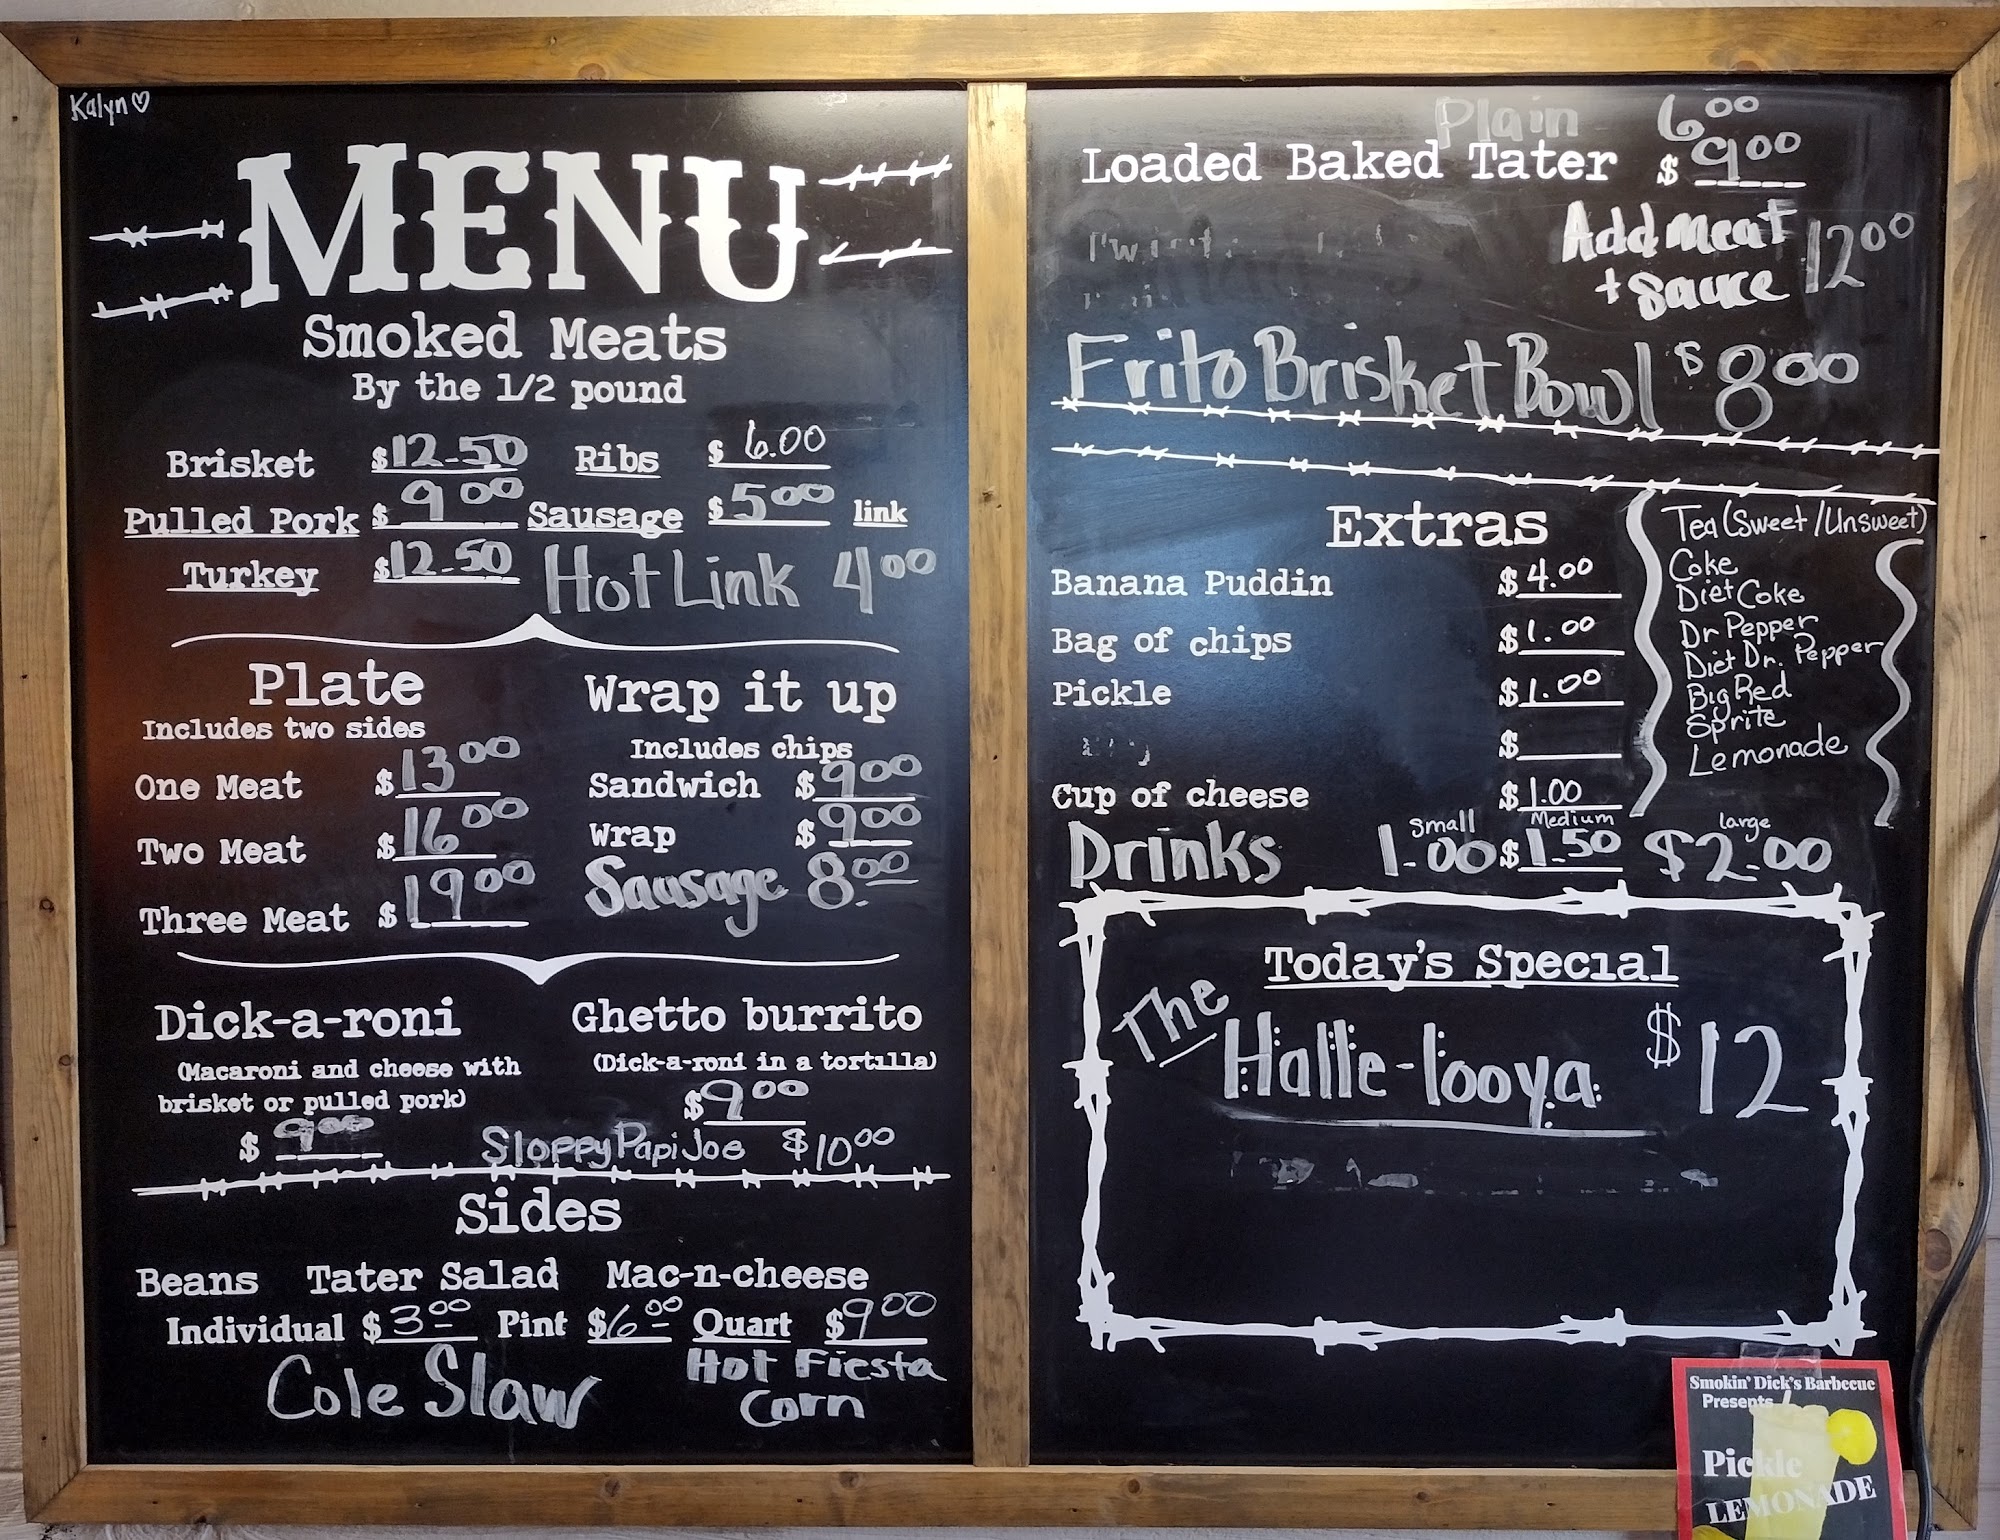 Kalyn♡
MENU
Smoked Meats
By the 1/2 pound
Brisket $12.50 Ribs $ 6.00
Pulled Pork $ 9.00 Sausage $ 5.00 link
Turkey $12.50 Hot Link 4.00
Plate
Includes two sides
One Meat $13.00
Two Meat $16.00
Three Meat $19.00
Wrap it up
Includes chips
Sandwich $9.00
Wrap $9.00
Sausage 8.00
Dick-a-roni
(Macaroni and cheese with
brisket or pulled pork)
$ 9.00
Ghetto burrito
(Dick-a-roni in a tortilla)
$9.00
Sloppy Papi Joe $10.00
Sides
Beans Tater Salad Mac-n-cheese
Individual $3.00 Pint $6.00 Quart $9.00
Cole Slaw
Hot Fiesta
Corn
Plain 6.00
Loaded Baked Tater $ 9.00
Add meat
+ sauce 12.00
Frito Brisket Bowl $8.00
Extras
Banana Puddin $4.00
Bag of chips $1.00
Pickle $1.00
$
Cup of cheese $1.00
small Medium large
Drinks 1.00 $1.50 $2.00
Tea (Sweet/Unsweet)
Coke
Diet Coke
Dr Pepper
Diet Dr. Pepper
Big Red
Sprite
Lemonade
Today's Special
The
Halle-looya $12
Smokin' Dick's Barbecue
Presents
Pickle
LEMONADE